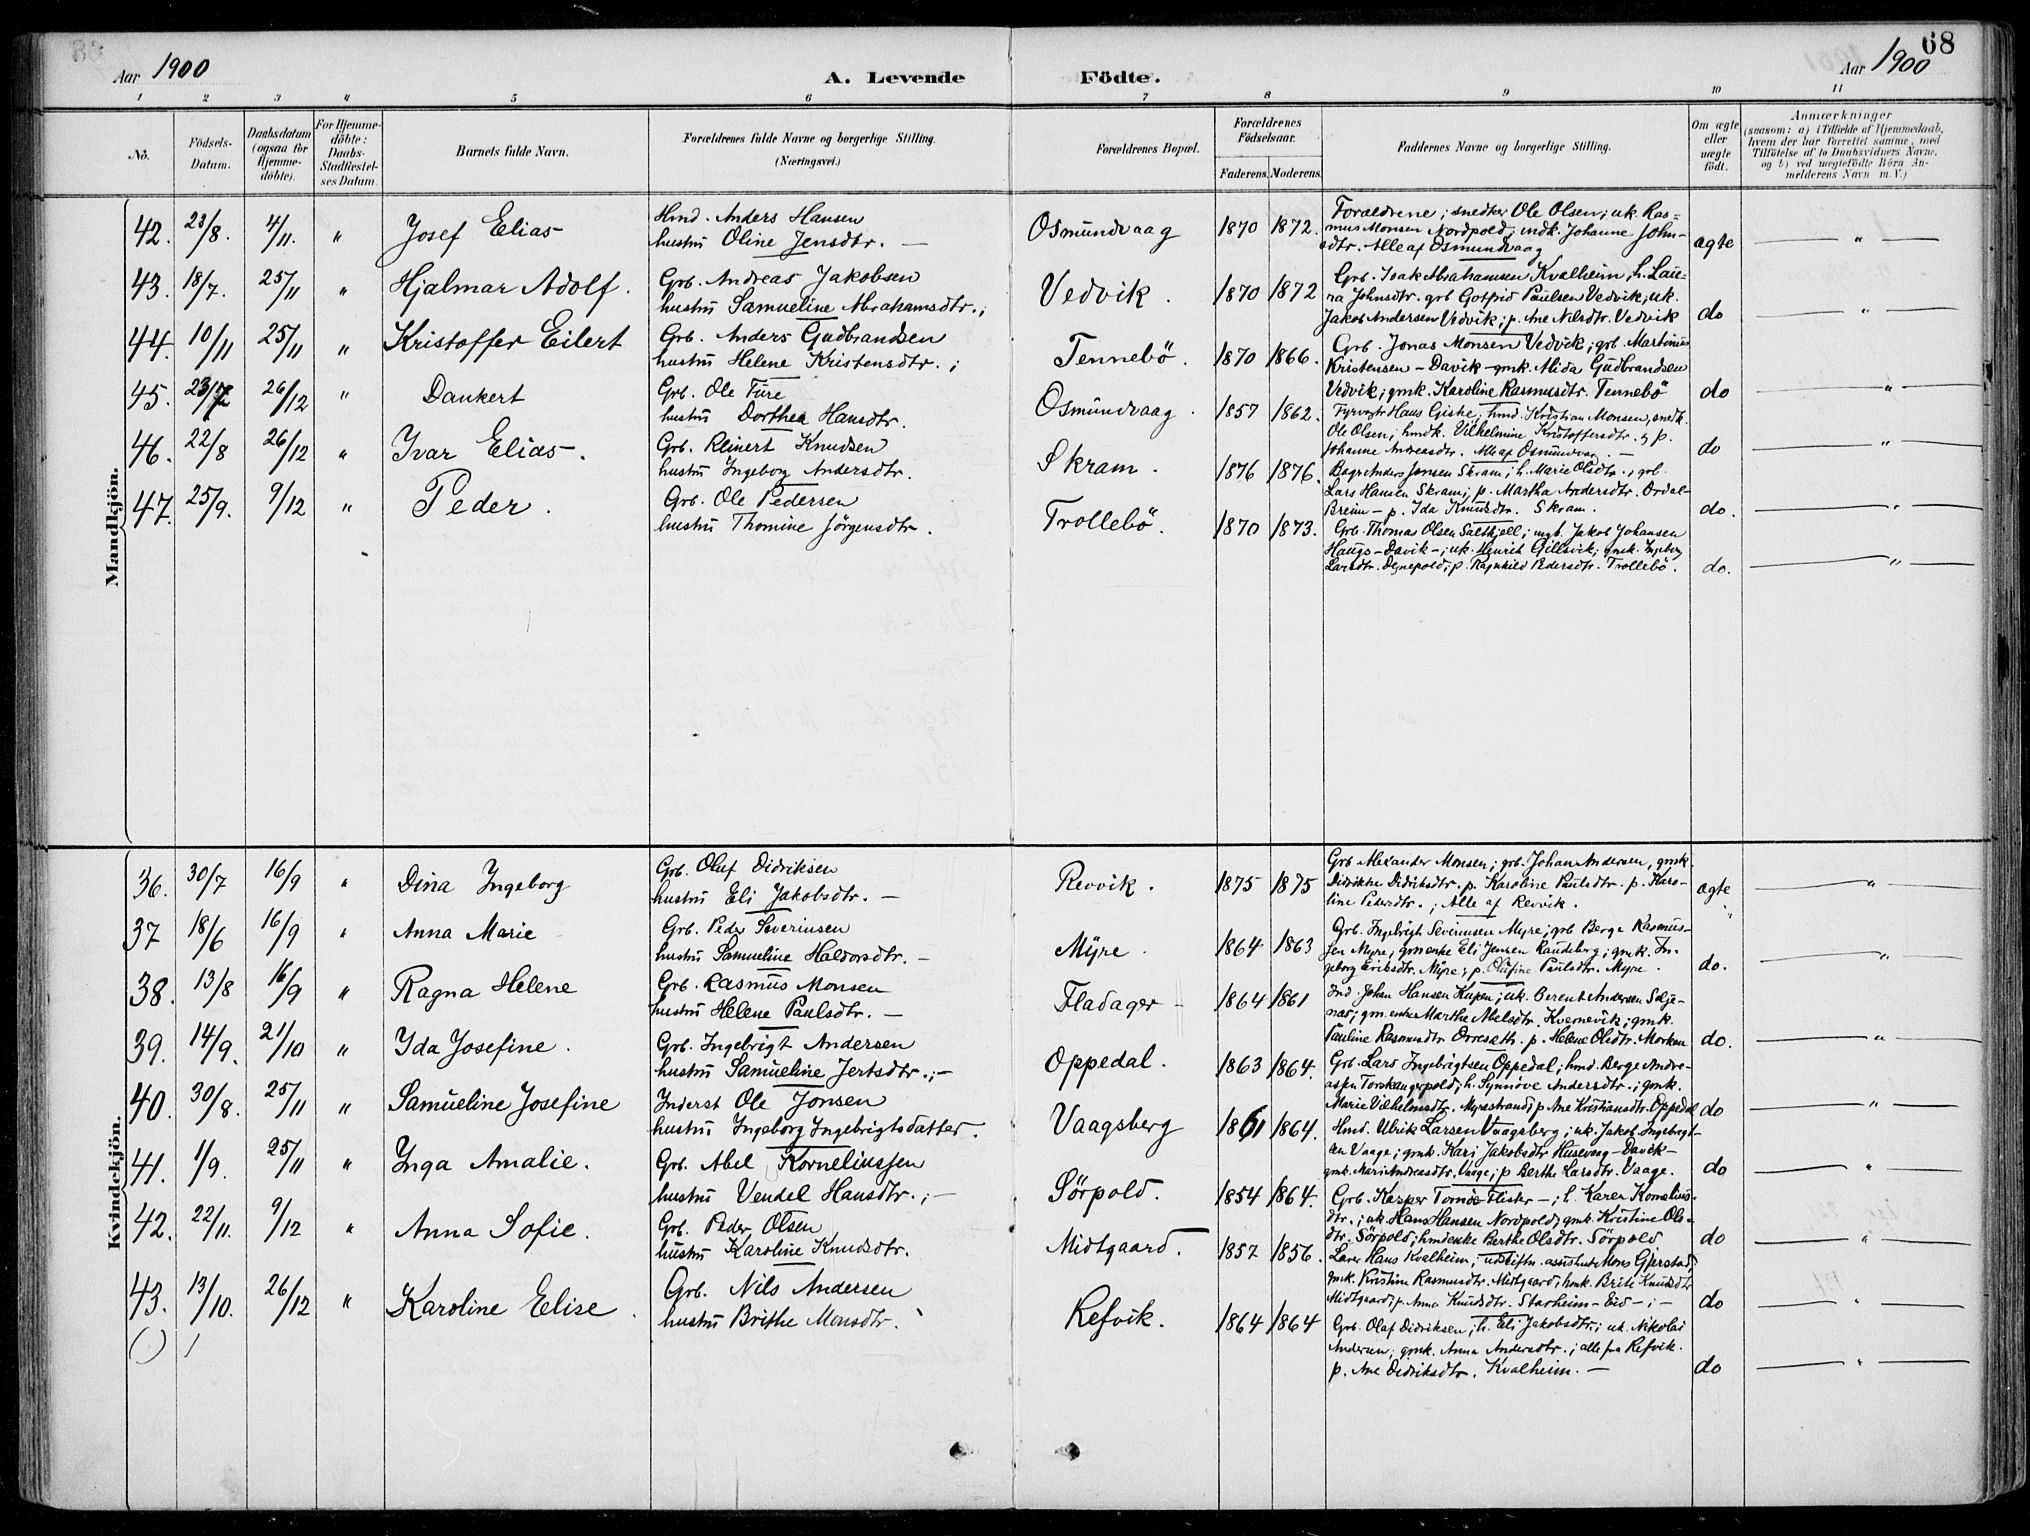 68
Aar 1900
A. Levende Födte.
Aar 1900
1 2 3 4 5 6 7 8 9 10 11
No.
Födsels-Datum.
Daabsdatum (ogsaa for Hjemme-döbte).
For Hjemme-döbte: Daabs-Stadfæstel-ses Datum.
Barnets fulde Navn.
Forældrenes fulde Navne og borgerlige Stilling.
(Næringsvei.)
Forældrenes Bopæl.
Forældrenes Födselsaar.
Faderens. Moderens.
Faddernes Navne og borgerlige Stilling.
Om ægte eller uægte födt.
Anmærkninger
(saasom: a) i Tilfælde af Hjemmedaab,
hvem der har forrettet samme, med
Tilföielse af to Daabsvidners Navne.
og b) ved uægtefödte Börn An-
melderens Navn m. V.)
Mandkjön.
42. 23/8. 4/11. " Josef Elias Hmd. Anders Hansen
hustru Oline Jensdtr. — Osmundvaag 1870 1872.
Forældrene; snedker Ole Olsen; uk. Ras=
mus Monsen Nordpold; indk. Johanne John-
sdtr. Alle af Osmundvaag ægte "
43. 18/7. 25/11 " Hjalmar Adolf. Grb. Andreas Jakobsen
hustru Samueline Abrahamsdtr.; Vedvik. 1870 1872
Grb. Isak Abrahamsen Kvalheim, h. Lau-
ra Johnsdtr. grb Gotfrid Paulsen Vedvik; uk.
Jakob Andersen Vedvik; p. Ane Nilsdtr. Vedvik do "
44. 10/11 25/11 " Kristoffer Eilert Grb. Anders Gudbrandsen
hustru Helene Kristensdtr.; Tennebö. 1870 1866.
Grb. Jonas Monsen Vedvik; grb. Martinus
Kristensen - Davik - gmk. Alida Gudbrandsen
Vedvik; gmk. Karoline Rasmusdtr. Tennebö do "
45. 26/12 " Dankert Grb. Ole Fure
hustru Dorthea Hansdtr. Osmundvaag. 1857 1862.
Fyrvogtr Hans Giske; hmd. Kristian Monsen, snedk.
Ole Olsen; hmdk. Vilhelmine Kristoffersdtr. og p.
Johanne Andreasdtr. Alle af Osmundvaag. — do "
46. 22/8 26/12 " Ivar Elias. Grb. Reinert Knudsen
hustru Ingeborg Andersdtr. Skram. 1876 1876.
Anders Jonsen Skram; h. Marie Olsdtr., grb.
Lars Hansen Skram; p. Martha Andersdtr. Ordal-
Breim - p. Ida Knudsdtr. Skram. do. "
47. 25/9. 9/12 " Peder. Grb. Ole Pedersen
hustru Thomine Jörgensdtr. Trollebö. 1870 1873.
Grb. Thomas Olsen Saltkjell; ungk. Jakob Johansen
Haugs-Davik-; uk. Henrik Gillesvik; gmk. Ingeborg
Larsdtr. Degnepold; p. Ragnhild Pedersdtr. Trollebö. do. "
Kvindekjön.
36. 30/7 16/9 " Dina Ingeborg Grb. Oluf Didriksen
hustru Eli Jakobsdtr. — Revvik. 1875 1875
Grb Alexander Monsen; grb. Johan Andersen, gmk.
Didrikke Didriksdtr. p. Karoline Paulsdtr. p. Karo-
line Pedersdtr.; Alle af Revvik. ægte "
37 18/6 16/9 " Anna Marie Grb. Peder Severinsen
hustru Samueline Haldorsdtr. — Myre 1864 1863
Grb. Ingebrigt Severinsen Myre; grb Berge Rasmus-
sen Myre, gm enke Eli Jensen Raudeberg; gmk. In-
geborg Eriksdtr. Myre; p. Olufine Paulsdtr. Myre. do. "
38. 13/8 16/9 " Ragna Helene Grb. Rasmus Monsen
hustru Helene Paulsdtr. — Fladager 1864 1861
Ind. Johan Hansen Kupen; uk. Berent Andersen Selje-
næs; gm.enke Marthe Abelsdtr. Kvernevik; gmk.
Pauline Rasmusdtr Orresæth. p. Helene Olsdtr. Morken do. "
39. 14/9. 21/10 " Ida Josefine. Grb. Ingebrigt Andersen
hustru Samueline Jertsdtr.;- Oppedal. 1863 1864.
Grb. Lars Ingebrigtsen Oppedal; hmd. Berge Andre-
assen Torskangerpold; h. Synnöve Andersdtr.; gmk.
Marie Vilhelmsdtr. Myrestrand; p Ane Kristiansdtr. Oppedal do "
40. 30/8. 25/11 " Samueline Josefine Inderst Ole Jonsen
hustru Ingeborg Ingebrigtsdatter. Vaagsberg 1861 1864.
Hmd. Ulrik Larsen Vaagsberg; uk. Jakob Ingebrigt-
sen Vaage; gmk. Kari Jakobsdtr Husevaag-Davik-
gmk. Mari Andreasdtr. Vaage; p Berthe Larsdtr. Vaage. do "
41. 1/9. 25/11 " Inga Amalie. Grb. Abel Korneliussen
hustru Vendel Hansdtr.;- Sörpold. 1854 1864.
Grb. Kasper Tornæs Flister-; h. Karen Kornelius-
dtr.; uk. Hans Hansen Nordpold; gmk. Kristine Ols-
dtr. Sörpold; hmdenke Berthe Olsdtr. Sörpold do "
42. 22/11. 9/12 " Anna Sofie. Grb. Peder Olsen
hustru Karoline Knudsdtr. Midtgaard. 1857 1856.
Lærer Hans Kvalheim; udskiftn. assistent Mons Gjerstad;
gmk. Kristine Rasmusdtr. Midtgaard; hmk. Brite Knudsdtr
Midtgaard; p. Anna Knudsdtr. Starheim-Eid-;- do "
43. 13/10. 26/12 " Karoline Elise. Grb. Nils Andersen
hustru Brithe Monsdtr. Refvik. 1864 1864
Grb. Olaf Didriksen; h. Eli Jakobsdtr.; uk. Nikolai
Andersen; gmk. Anna Andersdtr.; alle fra Refvik.
p. Ane Didriksdtr. Kvalheim. — do "